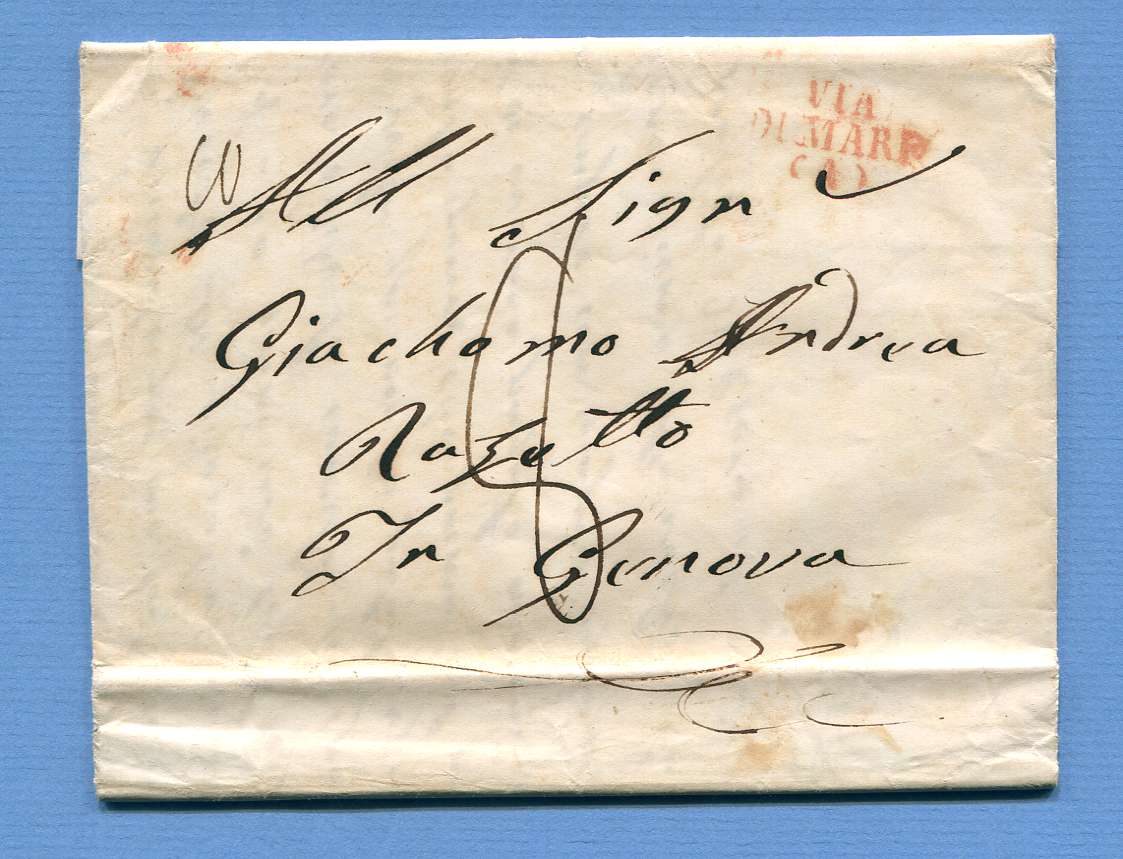 VIA
DI MARE
(A)
All Sign
Giachomo Andrea
Razetto
In Genova
8